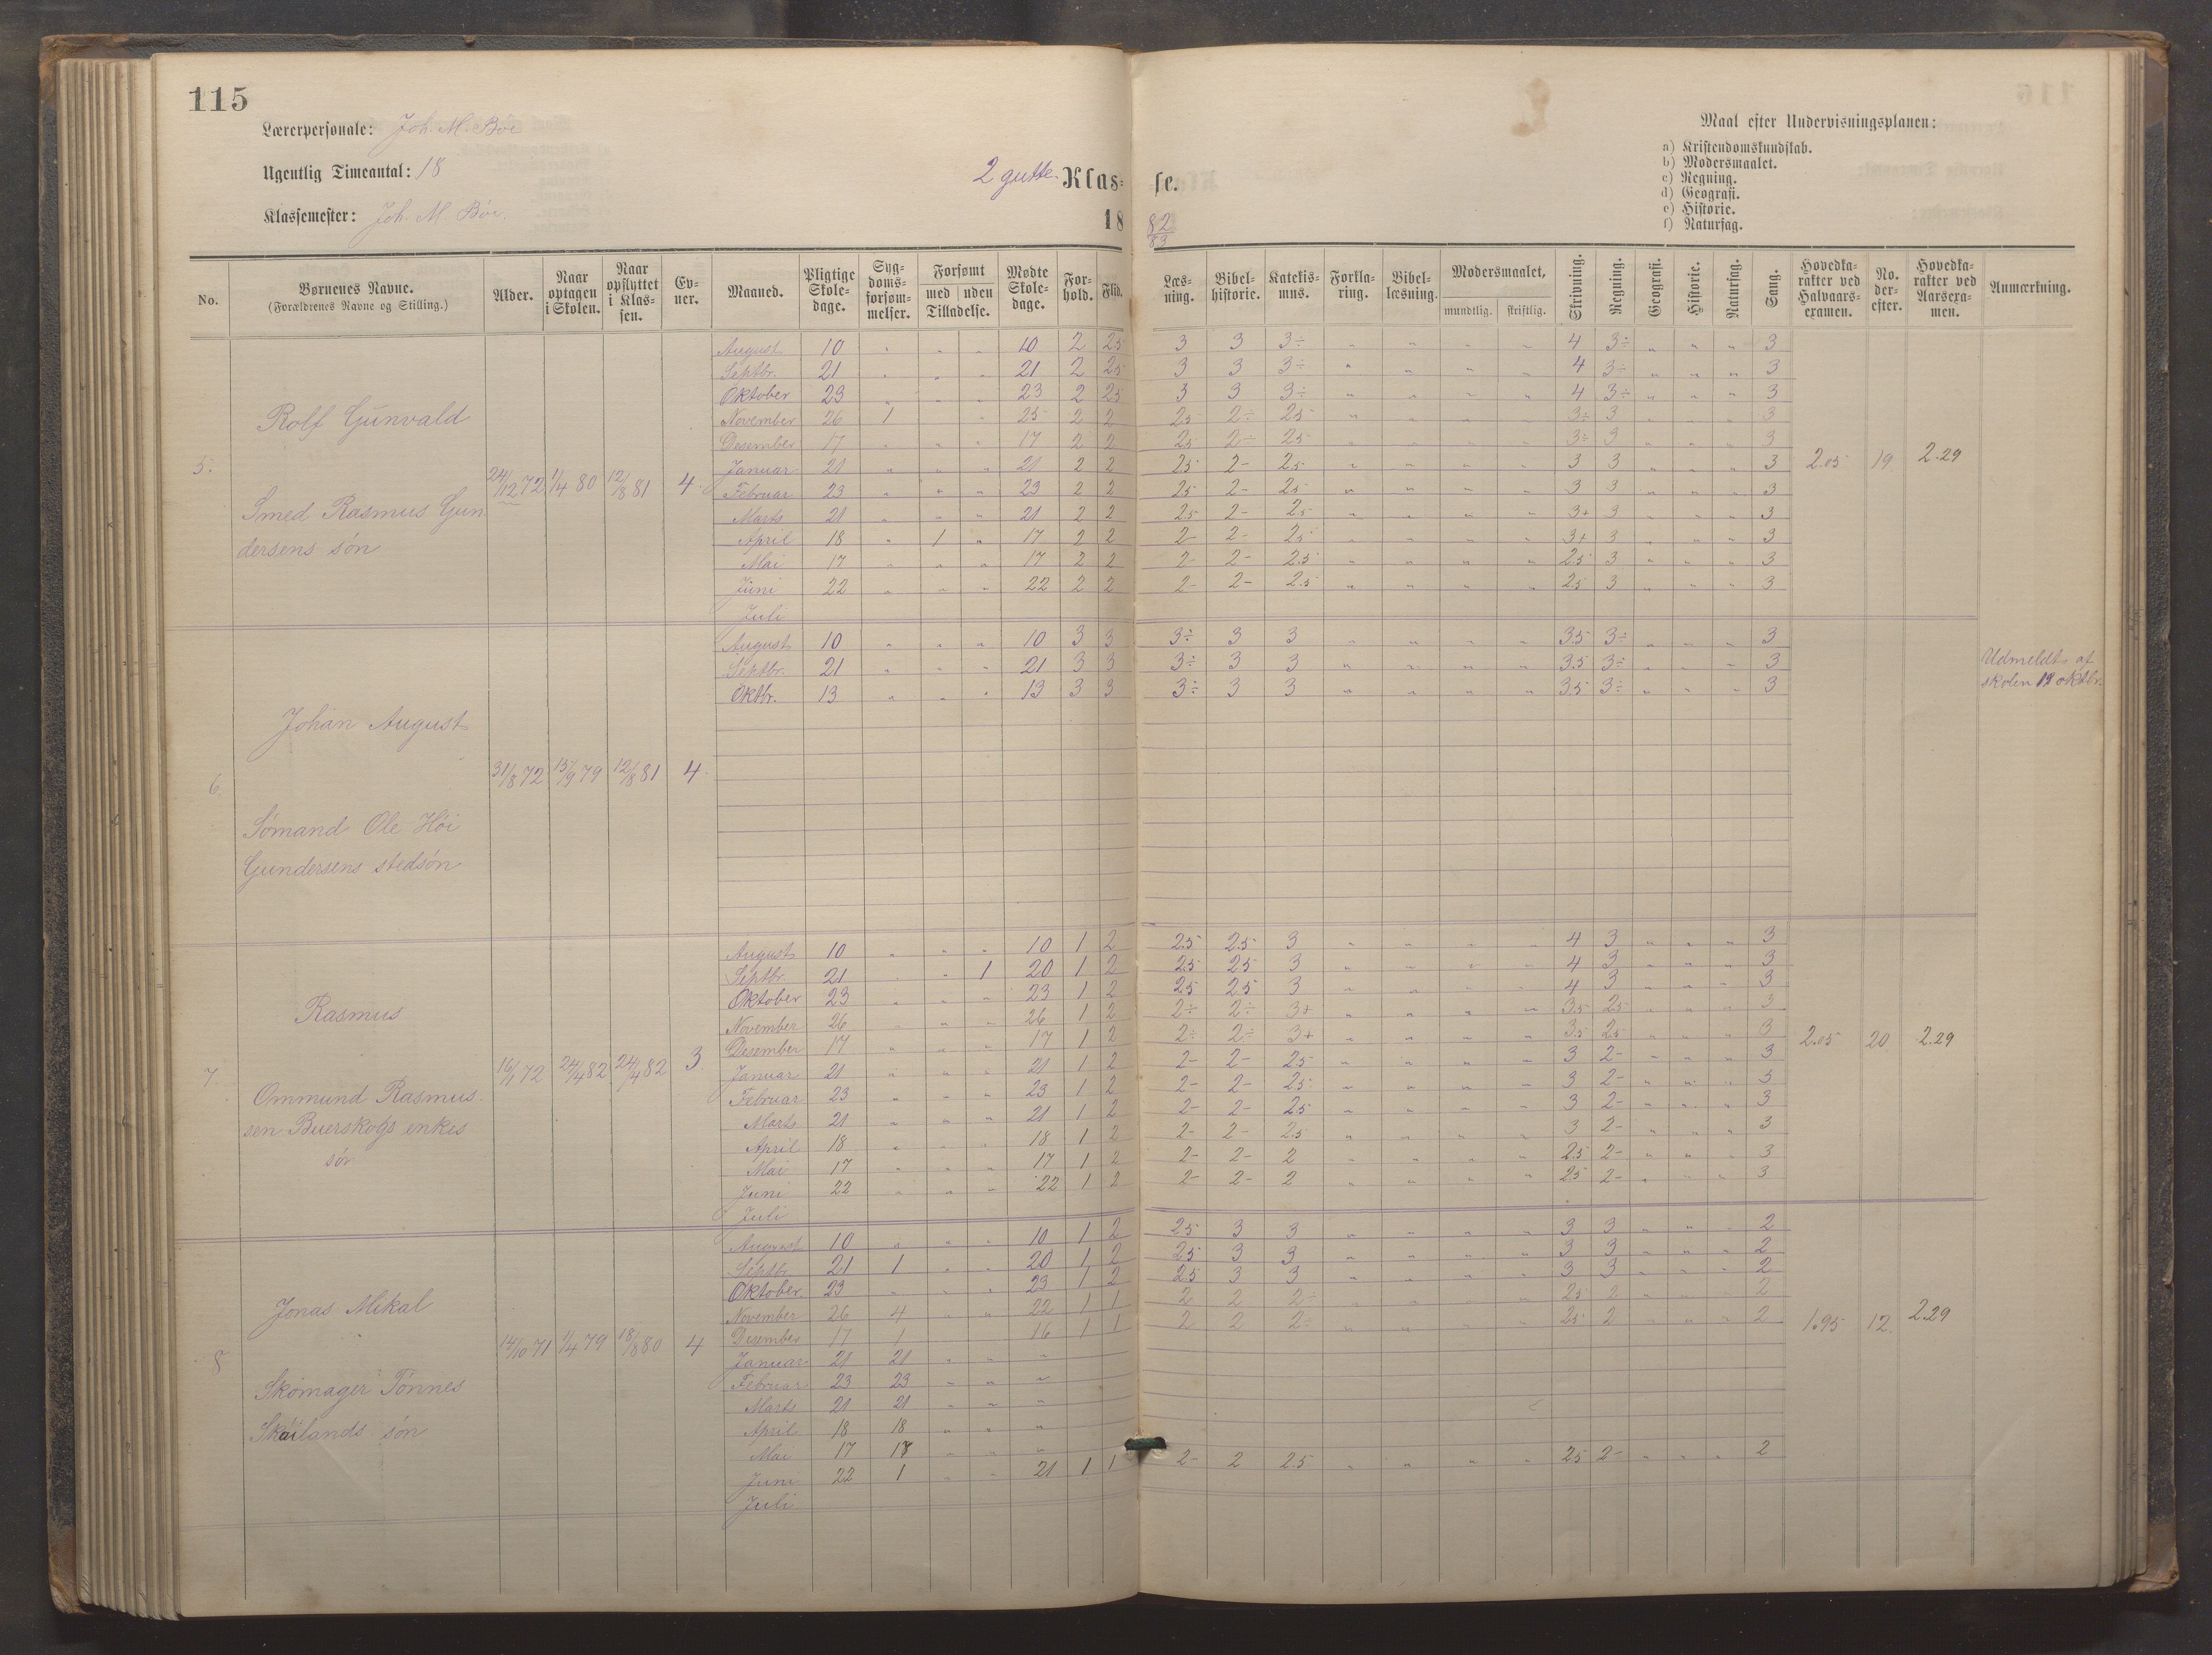 115
Lærerpersonale: Joh. M. Bøe
Ugentlig Timeantal: 18
Klassemester: Joh. M. Bøe.
2 gutte- Klas-
se.
18
82
83
Maal efter Undervisningsplanen:
a) Kristendomskundskab.
b) Modersmaalet.
c) Regning.
d) Geografi.
e) Historie.
f) Naturfag.
No. Børnenes Navne. (Forældrenes Navne og Stilling.) Alder. Naar optagen i Skolen. Naar opflyttet i Klassen. Evner. Maaned. Pligtige Skoledage. Sygdomsforsømmelser. Forsømt med uden Tilladelse. Mødte Skoledage. Forhold. Flid. Læsning. Bibelhistorie. Katekismus. Forklaring. Bibellæsning. Modersmaalet, mundtlig. skriftlig. Skrivning. Regning. Geografi. Historie. Naturfag. Sang. Hovedkarakter ved Halvaarsexamen. No. derefter. Hovedkarakter ved Aarsexamen. Anmærkning.
5. Rolf Gunvald
Smed Rasmus Gun
dersens søn
24/12 72 1/4 80 12/8 81 4
August 10 " " " 10 2 2.5 3 3 3÷ " " " " 4 3÷ " " " 3
Septbr. 21 " " " 21 2 2.5 3 3 3÷ " " " " 4 3÷ " " " 3
Oktober 23 " " " 23 2 2.5 3 3 3÷ " " " " 4 3÷ " " " 3
November 26 1 " 25 2 2 2.5 2÷ 2.5 " " " " 3÷ 3 " " " 3
Desember 17 " " " 17 2 2 2.5 2÷ 2.5 " " " " 3÷ 3 " " " 3
Januar 21 " " " 21 2 2 2.5 2- 2.5 " " " " 3 3 " " " 3
Februar 23 " " " 23 2 2 2.5 2- 2.5 " " " " 3 3 " " " 3
Marts 21 " " " 21 2 2 2.5 2- 2.5 " " " " 3+ 3 " " " 3
April 18 " 1 " 17 2 2 2- 2- 2.5 " " " " 3+ 3 " " " 3
Mai 17 " " " 17 2 2 2- 2- 2.5 " " " " 2.5 3 " " " 3
Juni 22 " " " 22 2 2 2- 2- 2.5 " " " " 2.5 3 " " " 3
Juli
2.05 19. 2.29
6. Johan August
Sømand Ole Høi
Gundersens stedsøn
31/8 72 15/9 79 12/8 81 4.
August 10 " " " 10 3 3 3÷ 3 3 " " " " 3.5 3÷ " " " 3
Septbr. 21 " " " 21 3 3 3÷ 3 3 " " " " 3.5 3÷ " " " 3
Oktbr. 13 " " " 13 3 3 3÷ 3 3 " " " " 3.5 3÷ " " " 3
Udmeldt af
skolen 13 oktbr.
7. Rasmus
Ommund Rasmus
sen Buerskogs enkes
søn
16/1 72 24/4 82 24/4 82 3.
August 10 " " " 10 1 2 2.5 2.5 3 " " " " 4 3 " " " 3
Septbr. 21 " " 1 20 1 2 2.5 2.5 3 " " " " 4 3 " " " 3
Oktober 23 " " " 23 1 2 2.5 2.5 3 " " " " 4 3 " " " 3
November 26 " " " 26 1 2 2÷ 2÷ 3+ " " " " 3.5 2.5 " " " 3
Desember 17 " " " 17 1 2 2÷ 2÷ 3+ " " " " 3.5 2.5 " " " 3
Januar 21 " " " 21 1 2 2- 2- 2.5 " " " " 3 2- " " " 3
Februar 23 " " " 23 1 2 2- 2- 2.5 " " " " 3 2- " " " 3
Marts 21 " " " 21 1 2 2- 2- 2.5 " " " " 3 2- " " " 3
April 18 " " " 18 1 2 2- 2- 2.5 " " " " 3 2- " " " 3
Mai 17 " " " 17 1 2 2- 2- 2 " " " " 2.5 2- " " " 3
Juni 22 " " " 22 1 2 2- 2- 2 " " " " 2.5 2- " " " 3
Juli
2.05 20 2.29
8 Jonas Mikal
Skomager Tønnes
Skailands søn
14/10 71 1/4 79 18/8 80 4
August 10 " " " 10 1 2 2.5 3 3 " " " " 3 3 " " " 2
Septbr. 21 1 " " 20 1 2 2.5 3 3 " " " " 3 3 " " " 2
Oktober 23 " " " 23 1 2 2.5 3 3 " " " " 3 3 " " " 2
November 26 4 " " 22 1 1 2 2 2÷ " " " " 2.5 2 " " " 2
Desember 17 1 " " 16 1 1 2 2 2÷ " " " " 2.5 2 " " " 2
Januar 21 21 " " "
Februar 23 23 " " "
Marts 21 21 " " "
April 18 18 " " "
Mai 17 17 " " "
Juni 22 1 " " 21 1 1 2- 2 2.5 " " " " 2.5 2- " " " 2
Juli
1.95 12. 2.29